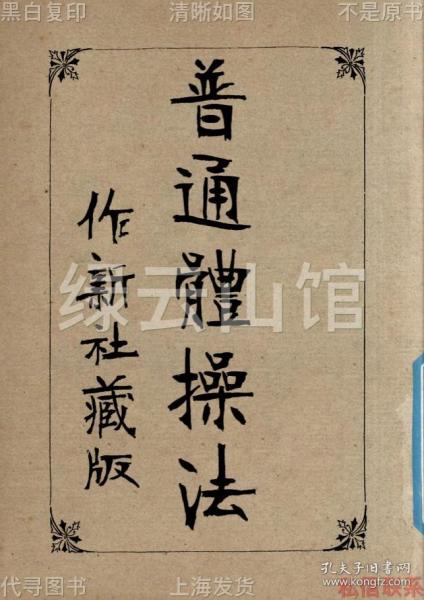 黑白复印
清晰如图
不是原书
普通體操法
作新社藏版
绿云山馆
代寻图书
上海发货
私信联系
孔夫子旧书网
www.kongfz.com